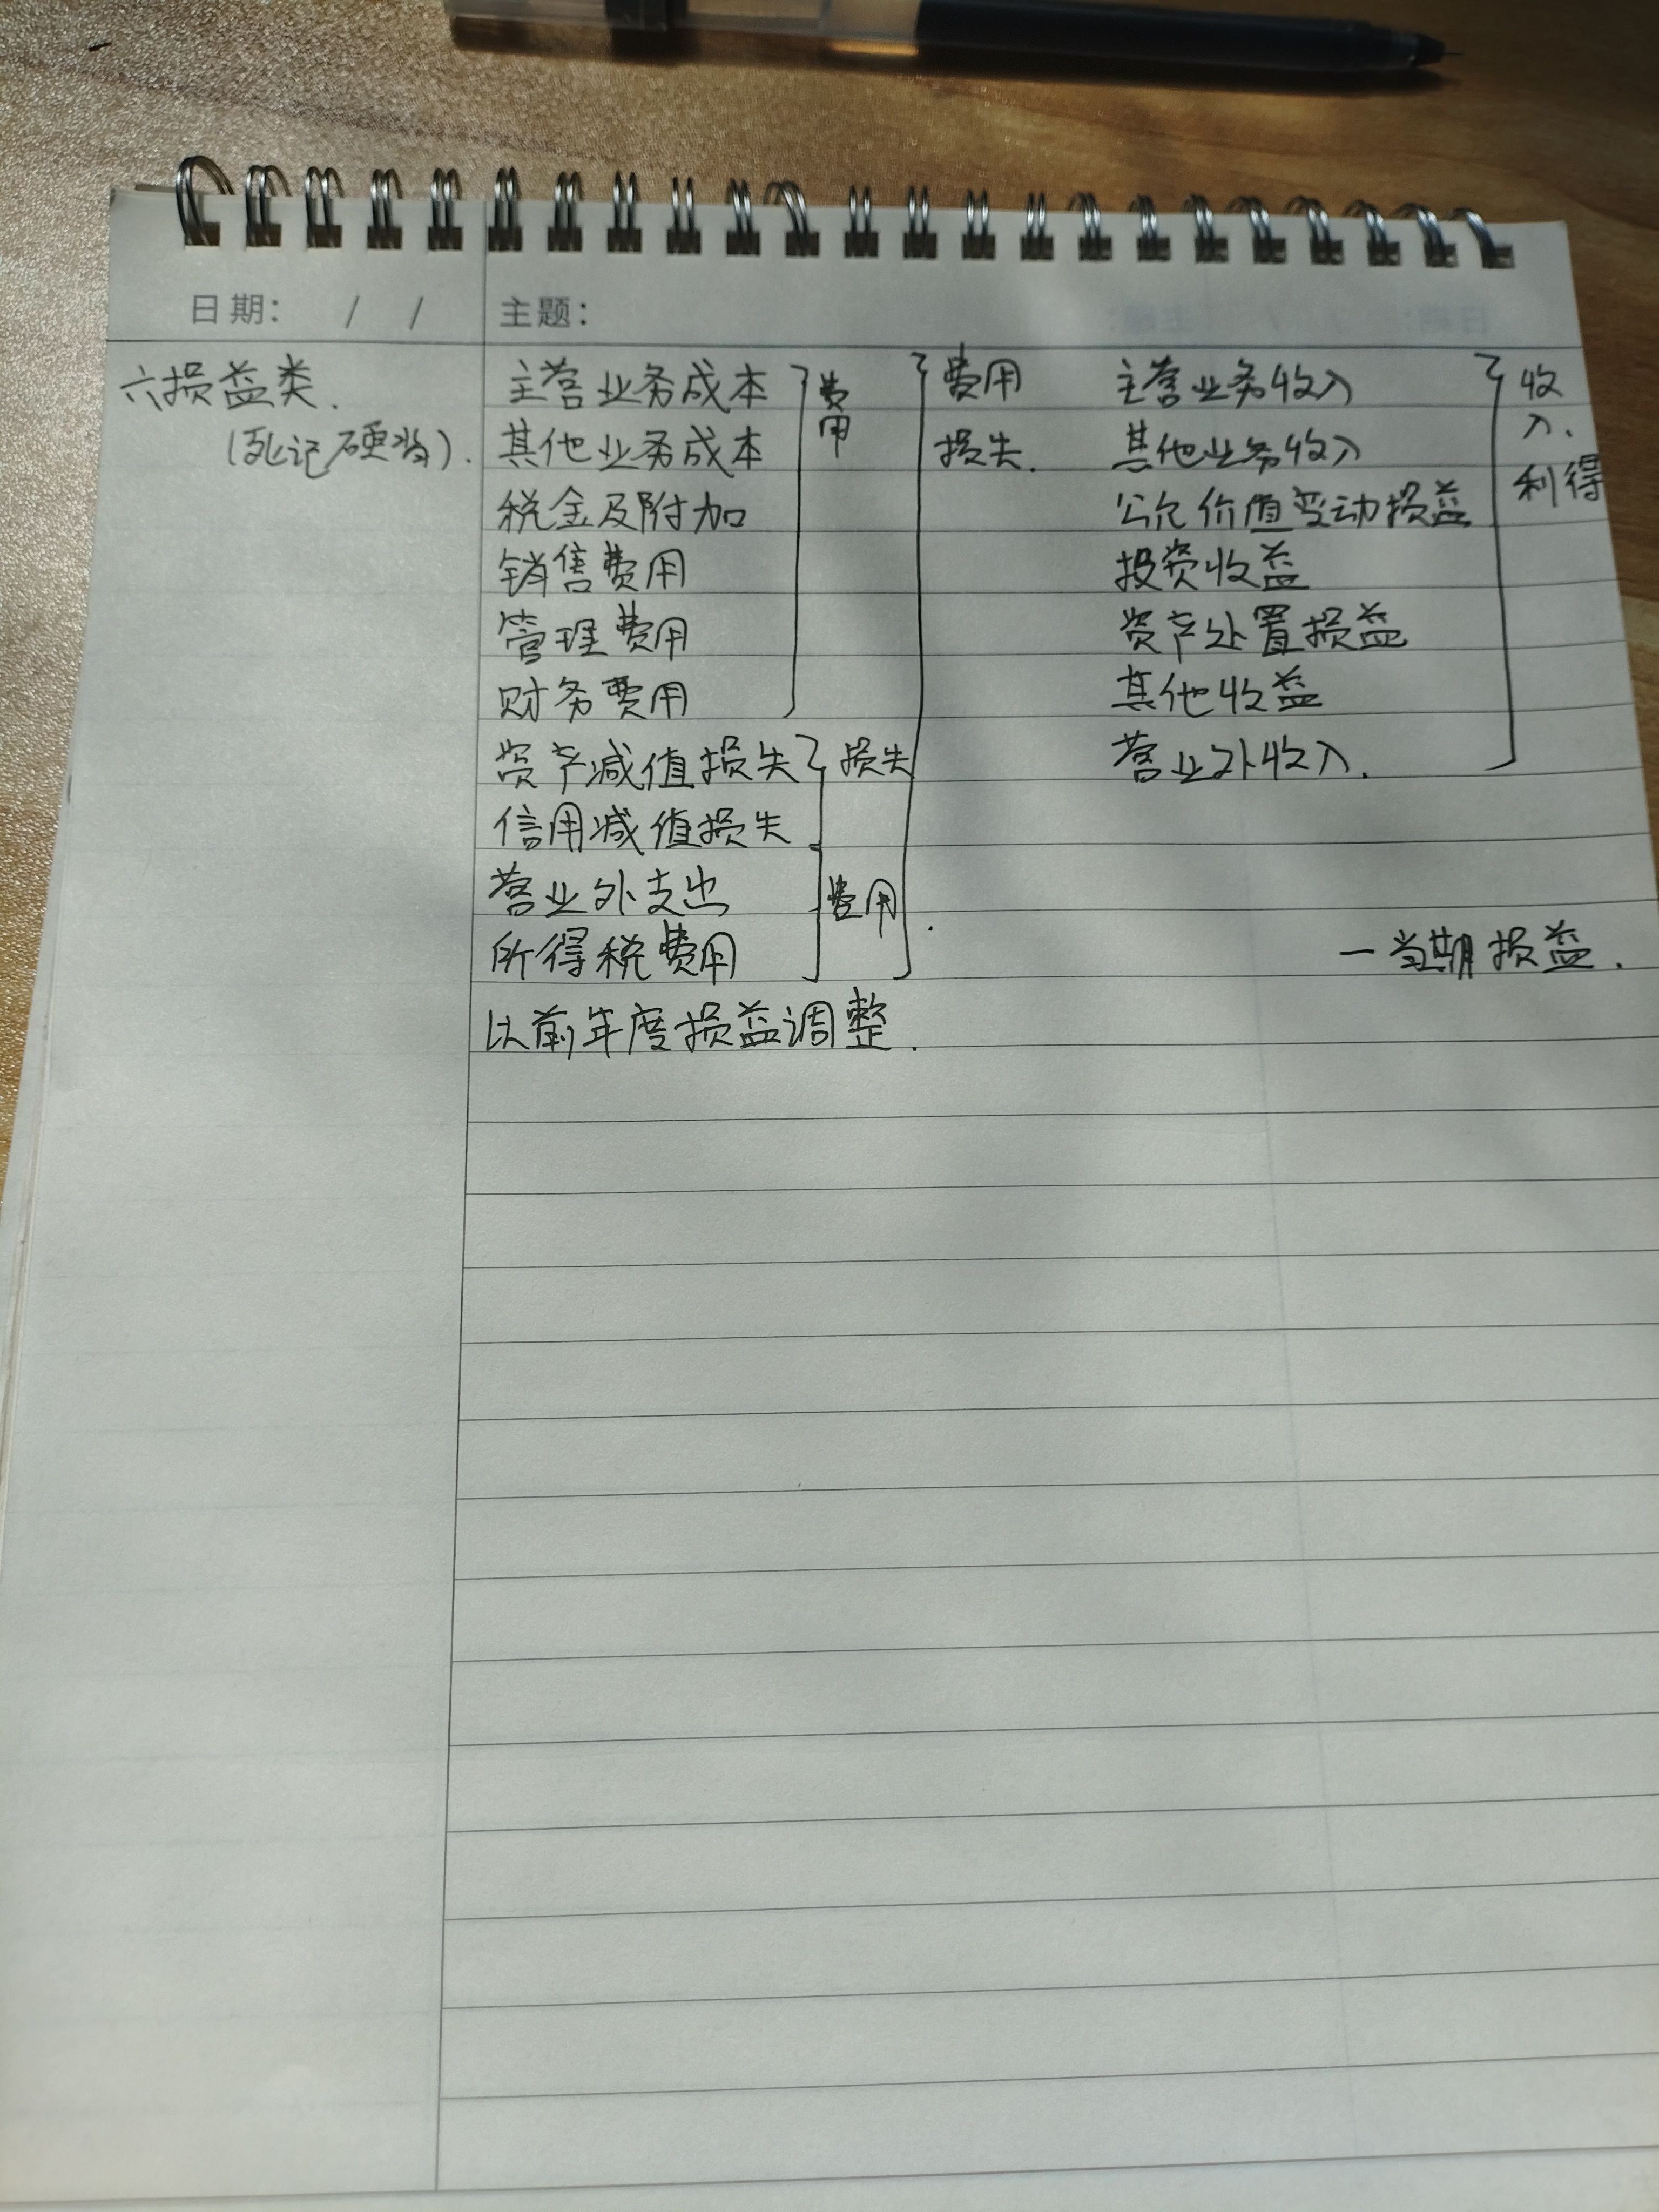 日期： / / 主题：
六损益类.
(死记硬背).
主营业务成本
其他业务成本
税金及附加
销售费用
管理费用
财务费用
费用
资产减值损失
信用减值损失
损失
营业外支出
所得税费用
费用
以前年度损益调整.
费用
损失.
主营业务收入
其他业务收入
公允价值变动损益
投资收益
资产处置损益
其他收益
营业外收入.
收入、
利得
一当期损益.